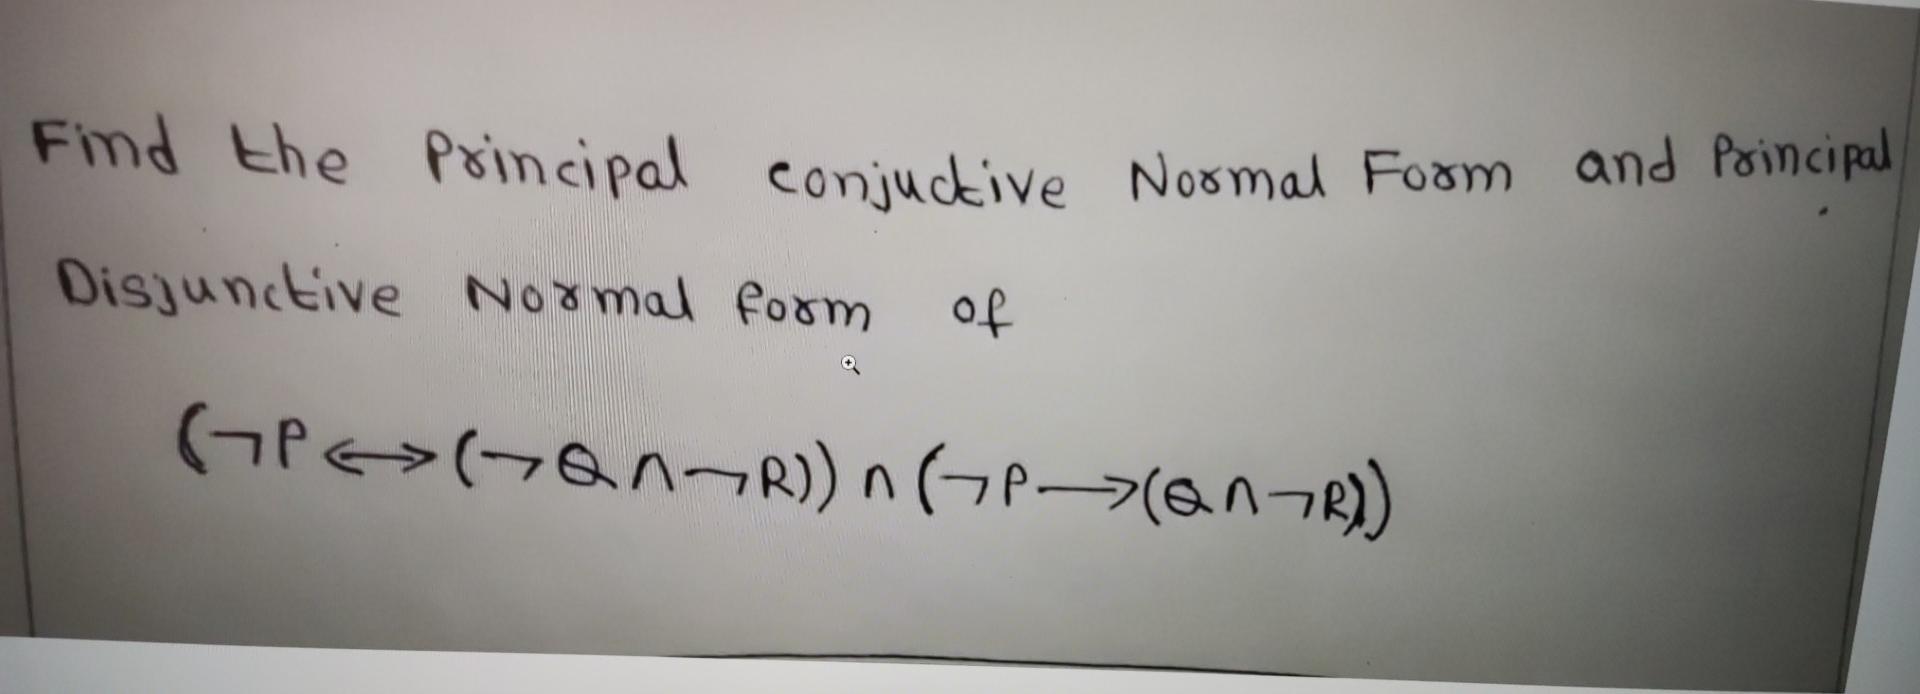 Find the Principal conjuctive Normal Form and Principal
Disjunctive Normal form of
(¬P⟷(¬Q∩¬R))∩(¬P⟶(Q∩¬R))